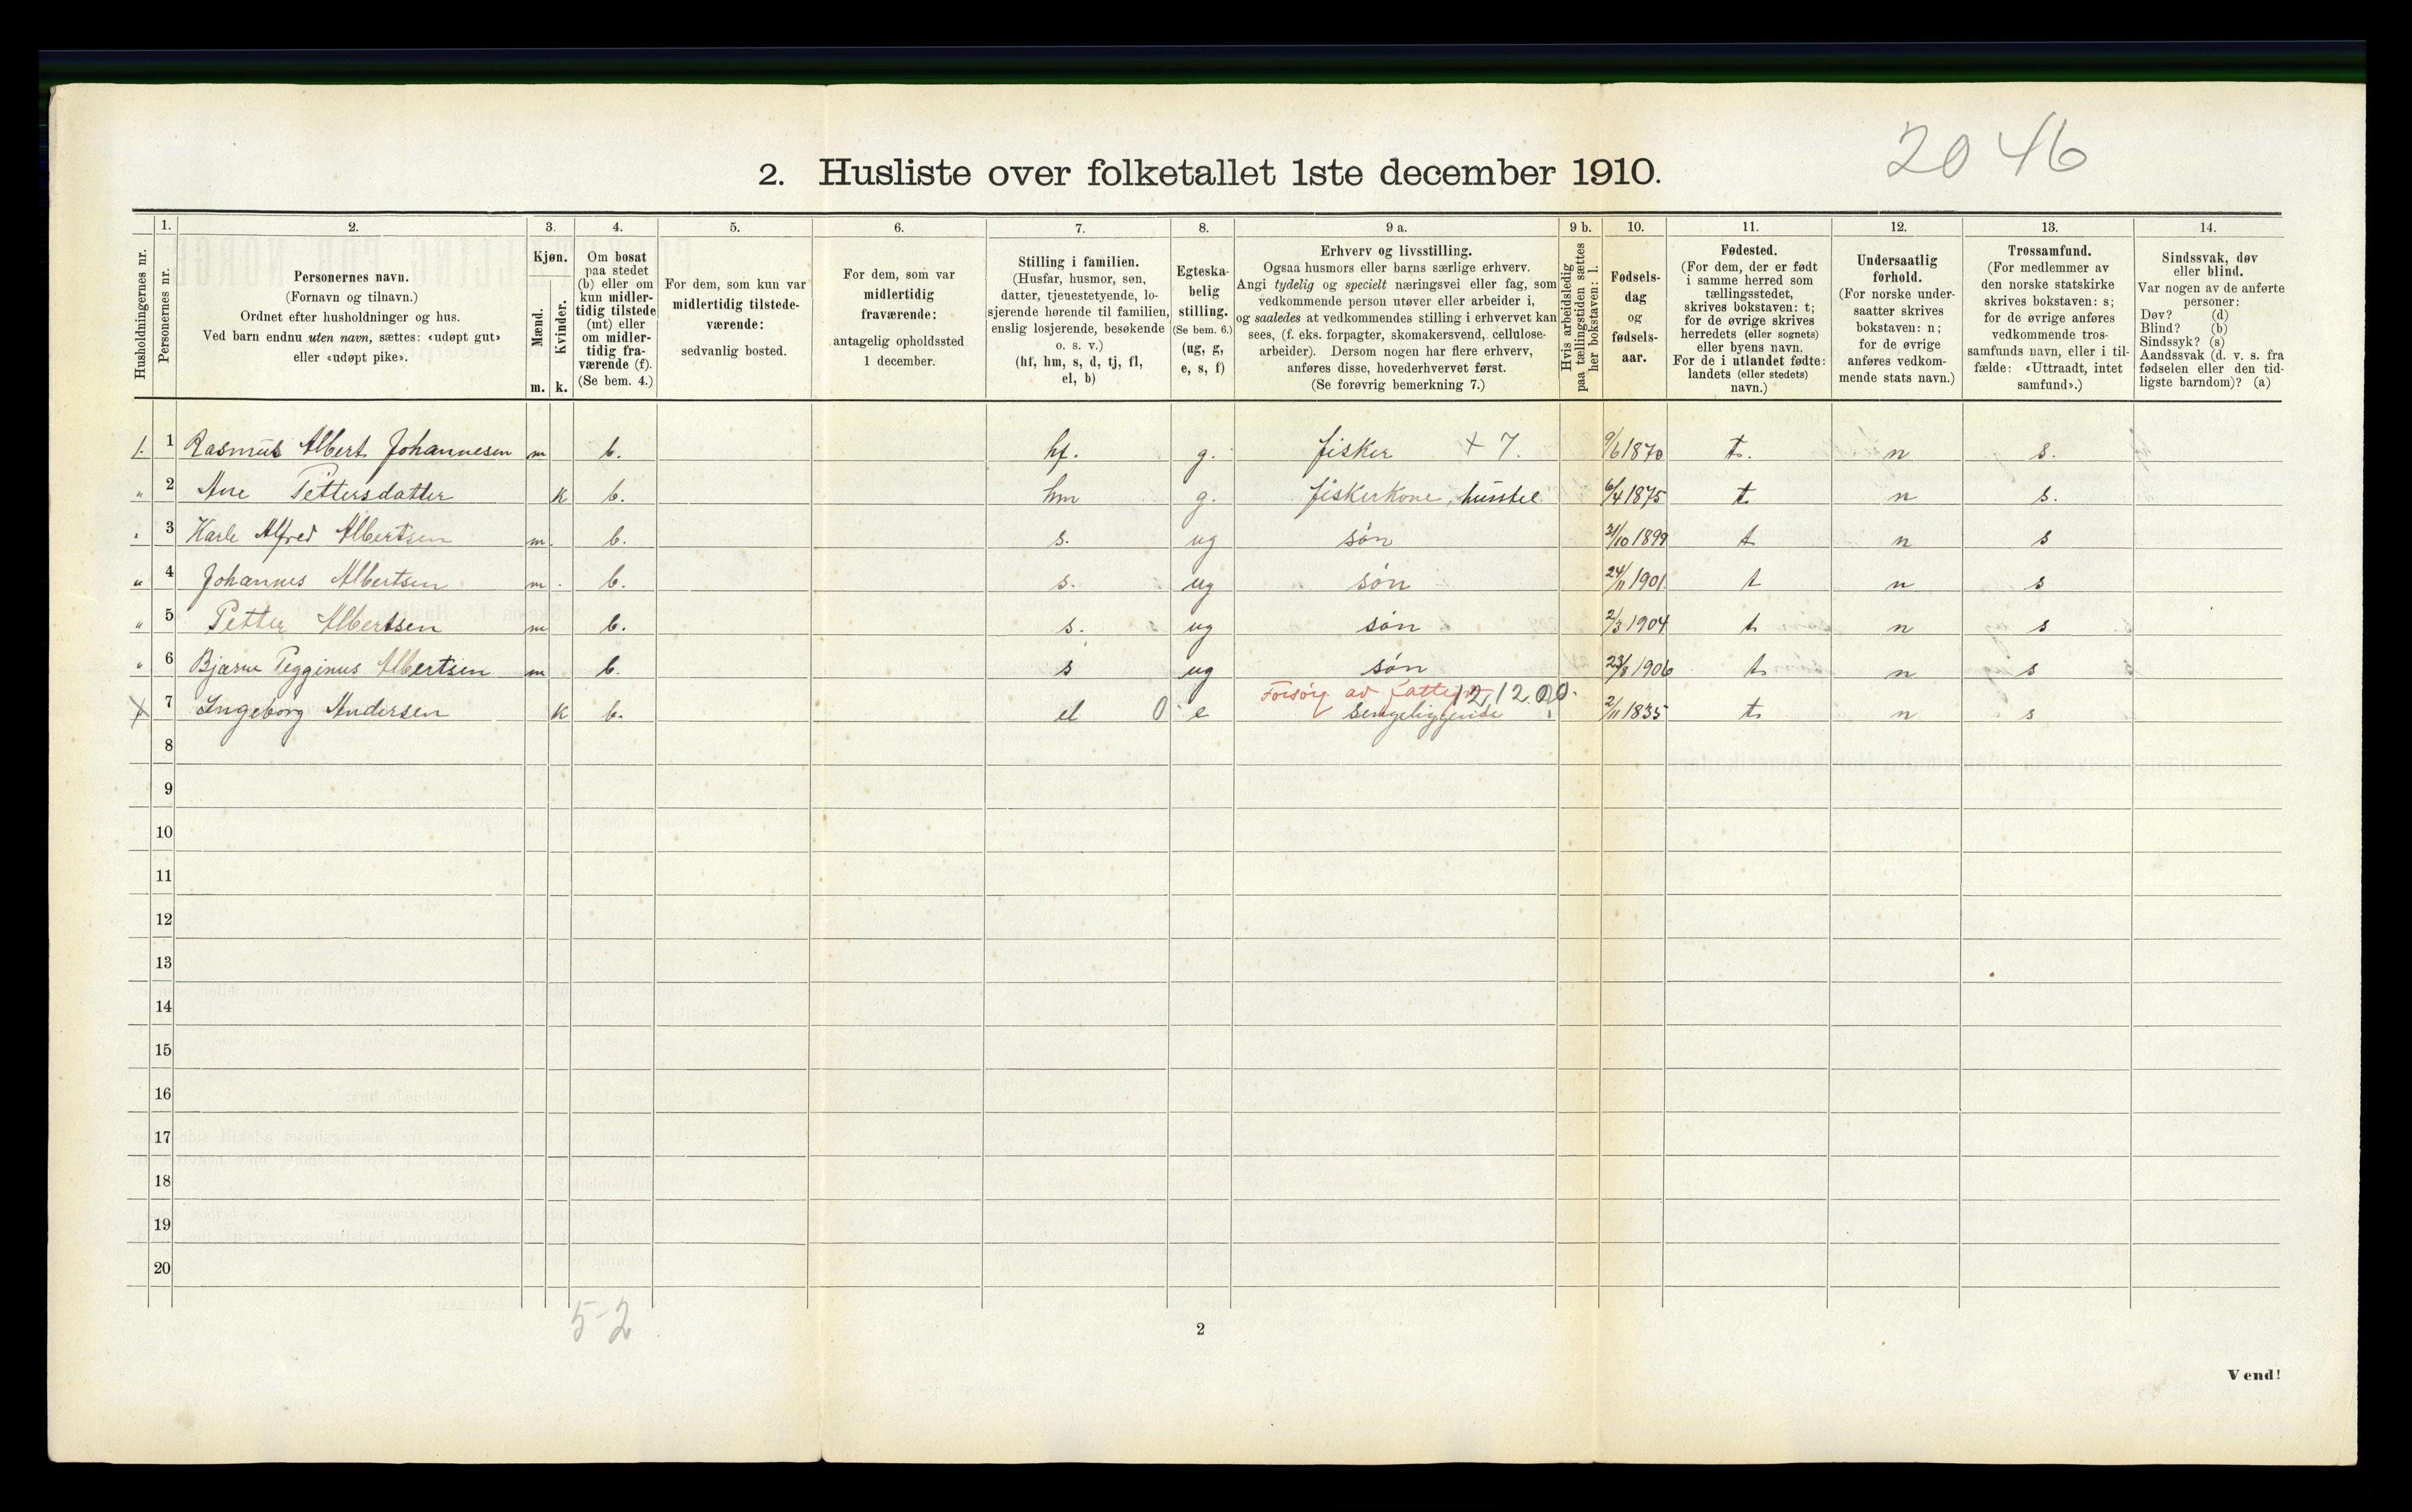 2046
2. Husliste over folketallet 1ste december 1910.
Husholdningernes nr.
1. Personernes nr.
2. Personernes navn.
(Fornavn og tilnavn.)
Ordnet efter husholdninger og hus.
Ved barn endnu uten navn, sættes: «udøpt gut»
eller «udøpt pike».
3. Kjøn.
Mænd. m.
Kvinder. k.
4. Om bosat
paa stedet
(b) eller om
kun midler-
tidig tilstede
(mt) eller
om midler-
tidig fra-
værende (f).
(Se bem. 4.)
5. For dem, som kun var
midlertidig tilstede-
værende:
sedvanlig bosted.
6. For dem, som var
midlertidig
fraværende:
antagelig opholdssted
1 december.
7. Stilling i familien.
(Husfar, husmor, søn,
datter, tjenestetyende, lo-
sjerende hørende til familien,
enslig losjerende, besøkende
o. s. v.)
(hf, hm, s, d, tj, fl,
el, b)
8. Egteska-
belig
stilling.
(Se bem. 6.)
(ug, g,
e, s, f)
9 a. Erhverv og livsstilling.
Ogsaa husmors eller barns særlige erhverv.
Angi tydelig og specielt næringsvei eller fag, som
vedkommende person utøver eller arbeider i,
og saaledes at vedkommendes stilling i erhvervet kan
sees, (f. eks. forpagter, skomakersvend, cellulose-
arbeider). Dersom nogen har flere erhverv,
anføres disse, hovederhvervet først.
(Se forøvrig bemerkning 7.)
9 b. Hvis arbeidsledig
paa tællingstiden sættes
her bokstaven: l.
10. Fødsels-
dag
og
fødsels-
aar.
11. Fødested.
(For dem, der er født
i samme herred som
tællingsstedet,
skrives bokstaven: t;
for de øvrige skrives
herredets (eller sognets)
eller byens navn.
For de i utlandet fødte:
landets (eller stedets)
navn.)
12. Undersaatlig
forhold.
(For norske under-
saatter skrives
bokstaven: n;
for de øvrige
anføres vedkom-
mende stats navn.)
13. Trossamfund.
(For medlemmer av
den norske statskirke
skrives bokstaven: s;
for de øvrige anføres
vedkommende tros-
samfunds navn, eller i til-
fælde: «Uttraadt, intet
samfund».)
14. Sindssvak, døv
eller blind.
Var nogen av de anførte
personer:
Døv? (d)
Blind? (b)
Sindssyk? (s)
Aandssvak (d. v. s. fra
fødselen eller den tid-
ligste barndom)? (a)
1. 1 Rasmus Albert Johannesen m b. hf. g. fisker + 7. 9/6 1870 t. n s.
" 2 Ane Pettersdatter k b. hm g. fiskerkone, husstel 6/4 1875 t n s.
" 3 Karle Alfred Albertsen m. b. s. ug søn 21/10 1899 t n s
" 4 Johannes Albertsen m b. s. ug søn 24/11 1901 t n s
" 5 Petter Albertsen m b. s. ug søn 2/3 1904 t n s
" 6 Bjarne Pegginus Albertsen m b. s ug søn 23/8 1906 t n s
Forsørg av fattigv 12,12.00.
x 7 Ingeborg Andersen k b. el 0 e Sengeliggende 2/11 1835 t n s
8
9
10
11
12
13
14
15
16
17
18
19
20
5-2
2
Vend!